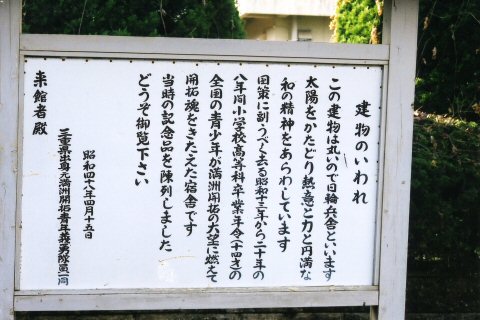 建物のいわれ
この建物は丸いので日輪兵舎といいます
太陽をかたどり熱意と力と円満な
和の精神をあらわしています
国策に副うべく去る昭和十三年から二十年の
八年间小学校高等科卒業年令(十四才)の
全国の青少年が満洲開拓の大望に燃えて
開拓魂をきたえた宿舎です
当時の記念品を陳列しました
どうぞ御覧下さい
昭和四十八年四月十五日
三重県出身元満洲開拓青年義勇隊員一同
来館者殿